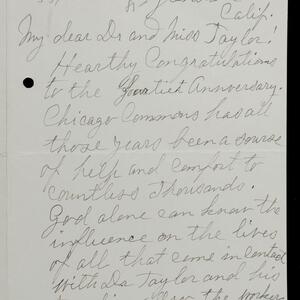 Calif.
My dear Dr and Miss Taylor!
Hearthy Congratulations
to the Fourtieth Anniversary.
Chicago Commons has all
those years been a source
of help and comfort to
countless thousands.
God alone can know the
influence on the lives
of all that came in contact
with Dr Taylor and his
the workers